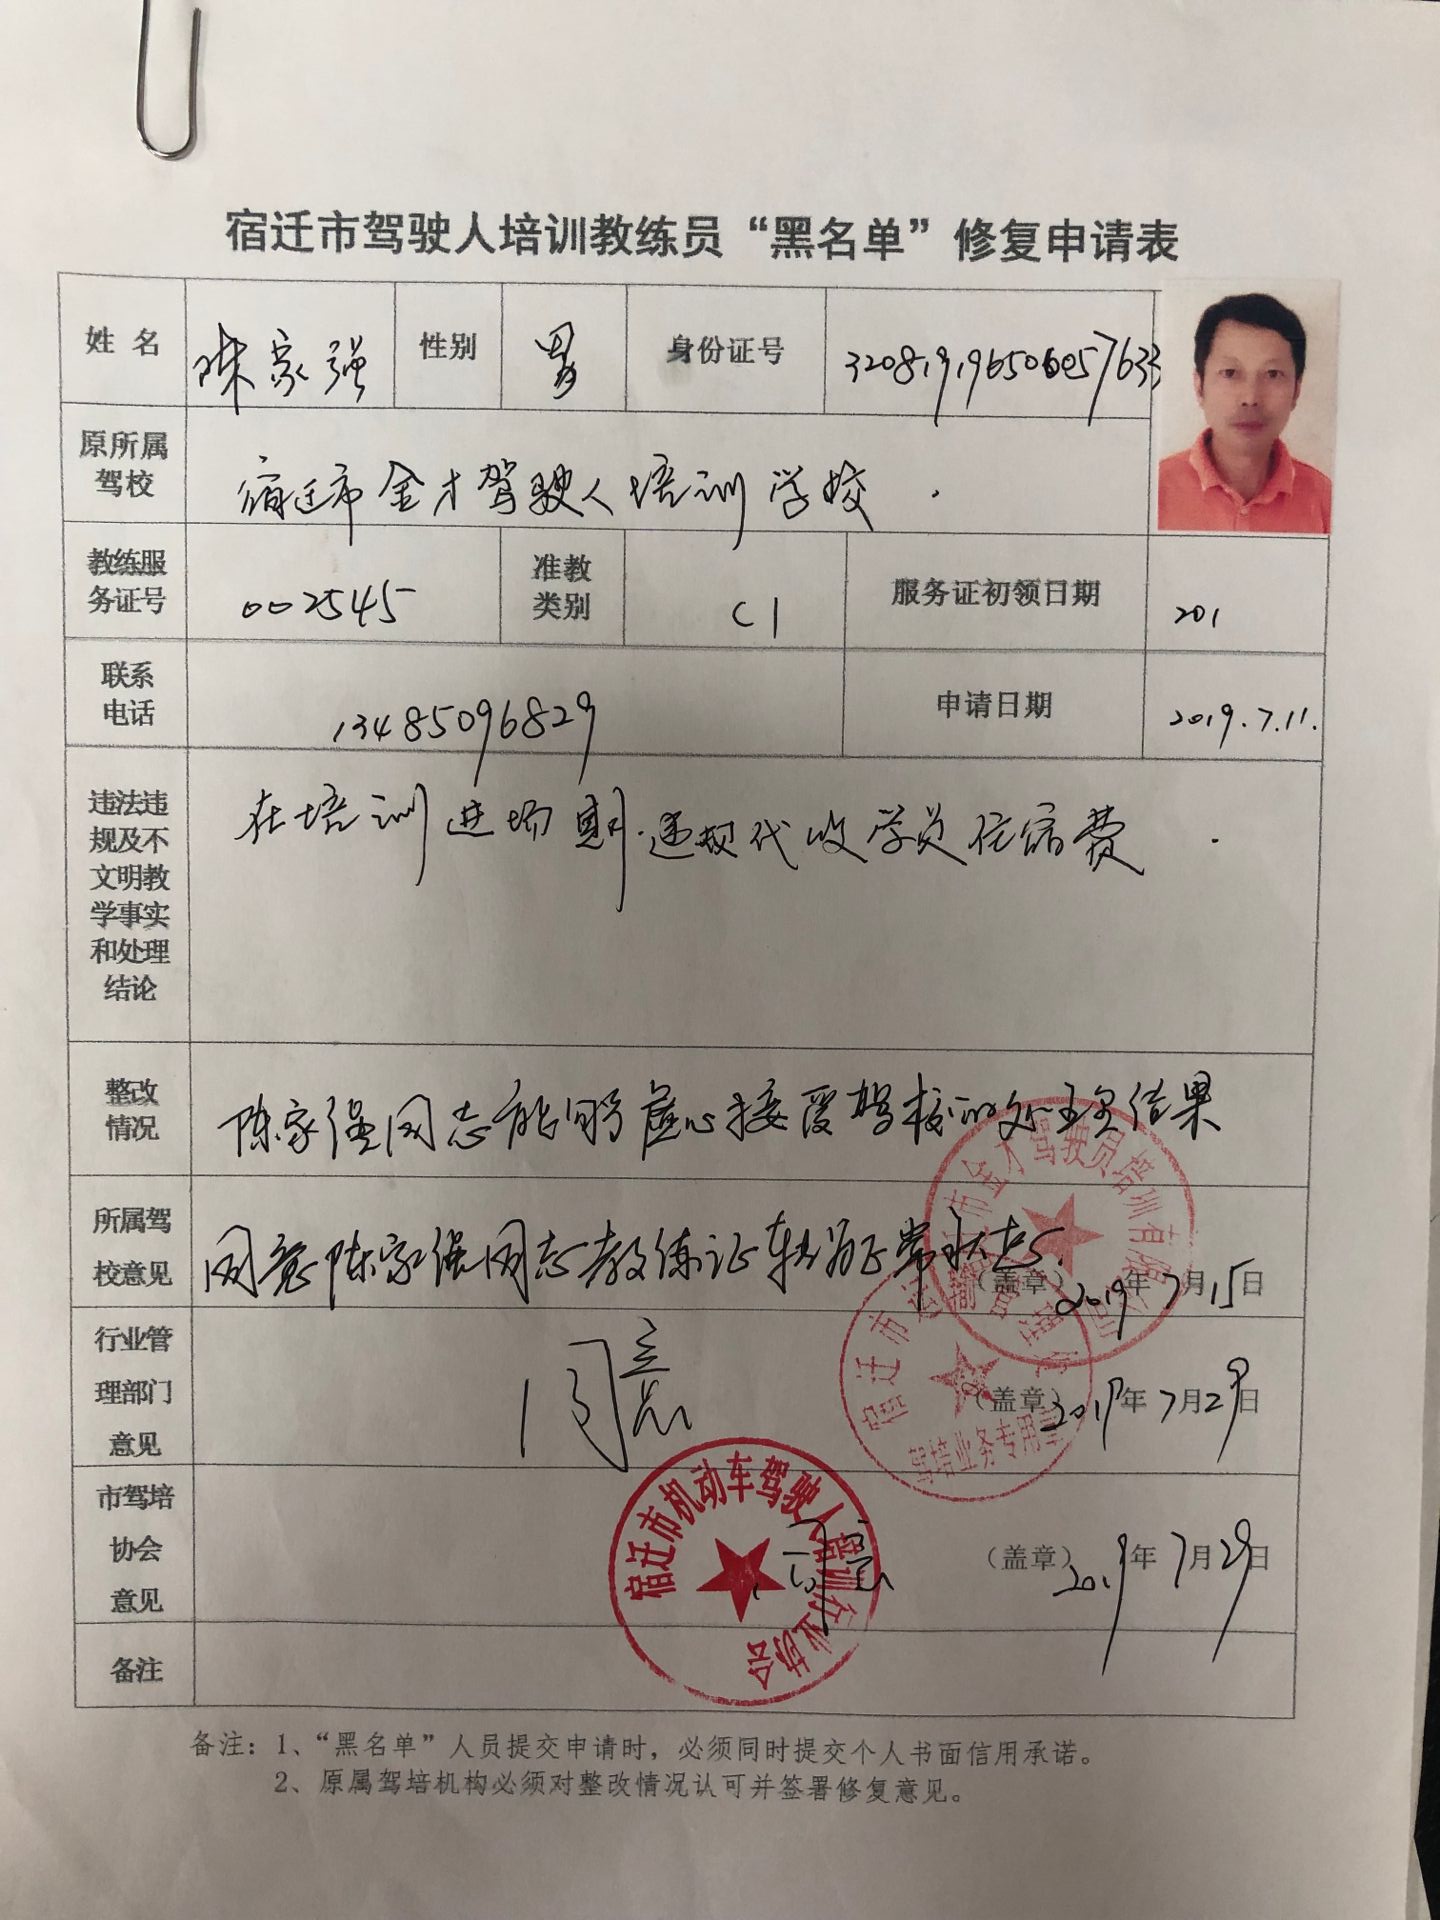 宿迁市驾驶人培训教练员“黑名单”修复申请表
姓 名 陈家强 性别 男 身份证号
原所属驾校 宿迁市金才驾驶人培训学校.
教练服务证号 002545 准教类别 C1 服务证初领日期 201
联系电话 13485096829 申请日期 2019.7.11.
违法违规及不文明教学事实和处理结论 在培训进场期.违规代收学员住宿费.
整改情况 陈家强同志能够虚心接受驾校的处理结果
所属驾校意见 同意陈家强同志教练证转为正常状态.
(盖章) 2019年7月15日
行业管理部门意见 同意
(盖章) 2019年7月29日
市驾培协会意见 同意
(盖章) 2019年7月29日
备注
市金才驾驶员培训有限
宿迁市运输管理
驾培业务专用章
宿迁市机动车驾驶人培训行业协会
备注：1、“黑名单”人员提交申请时，必须同时提交个人书面信用承诺。
2、原属驾培机构必须对整改情况认可并签署修复意见。